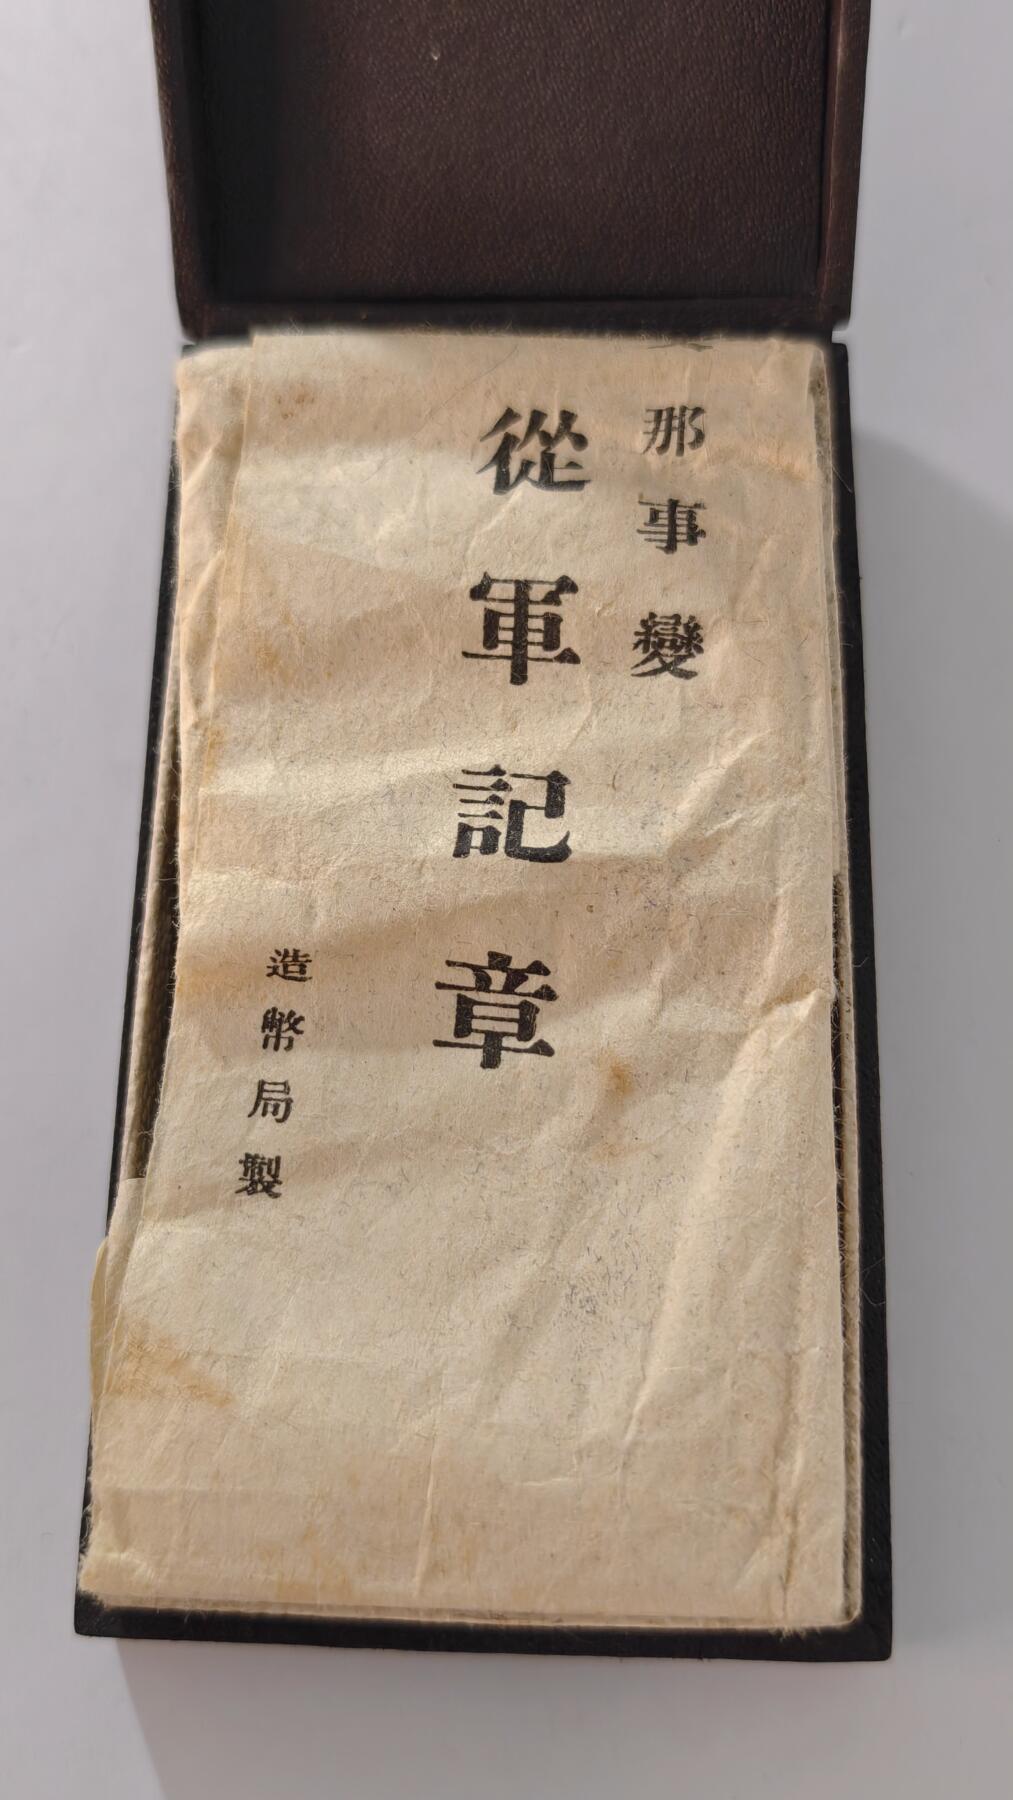 那事變
從軍記章
造幣局製